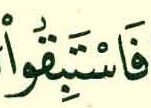 فَاسْتَبِقُوا۟